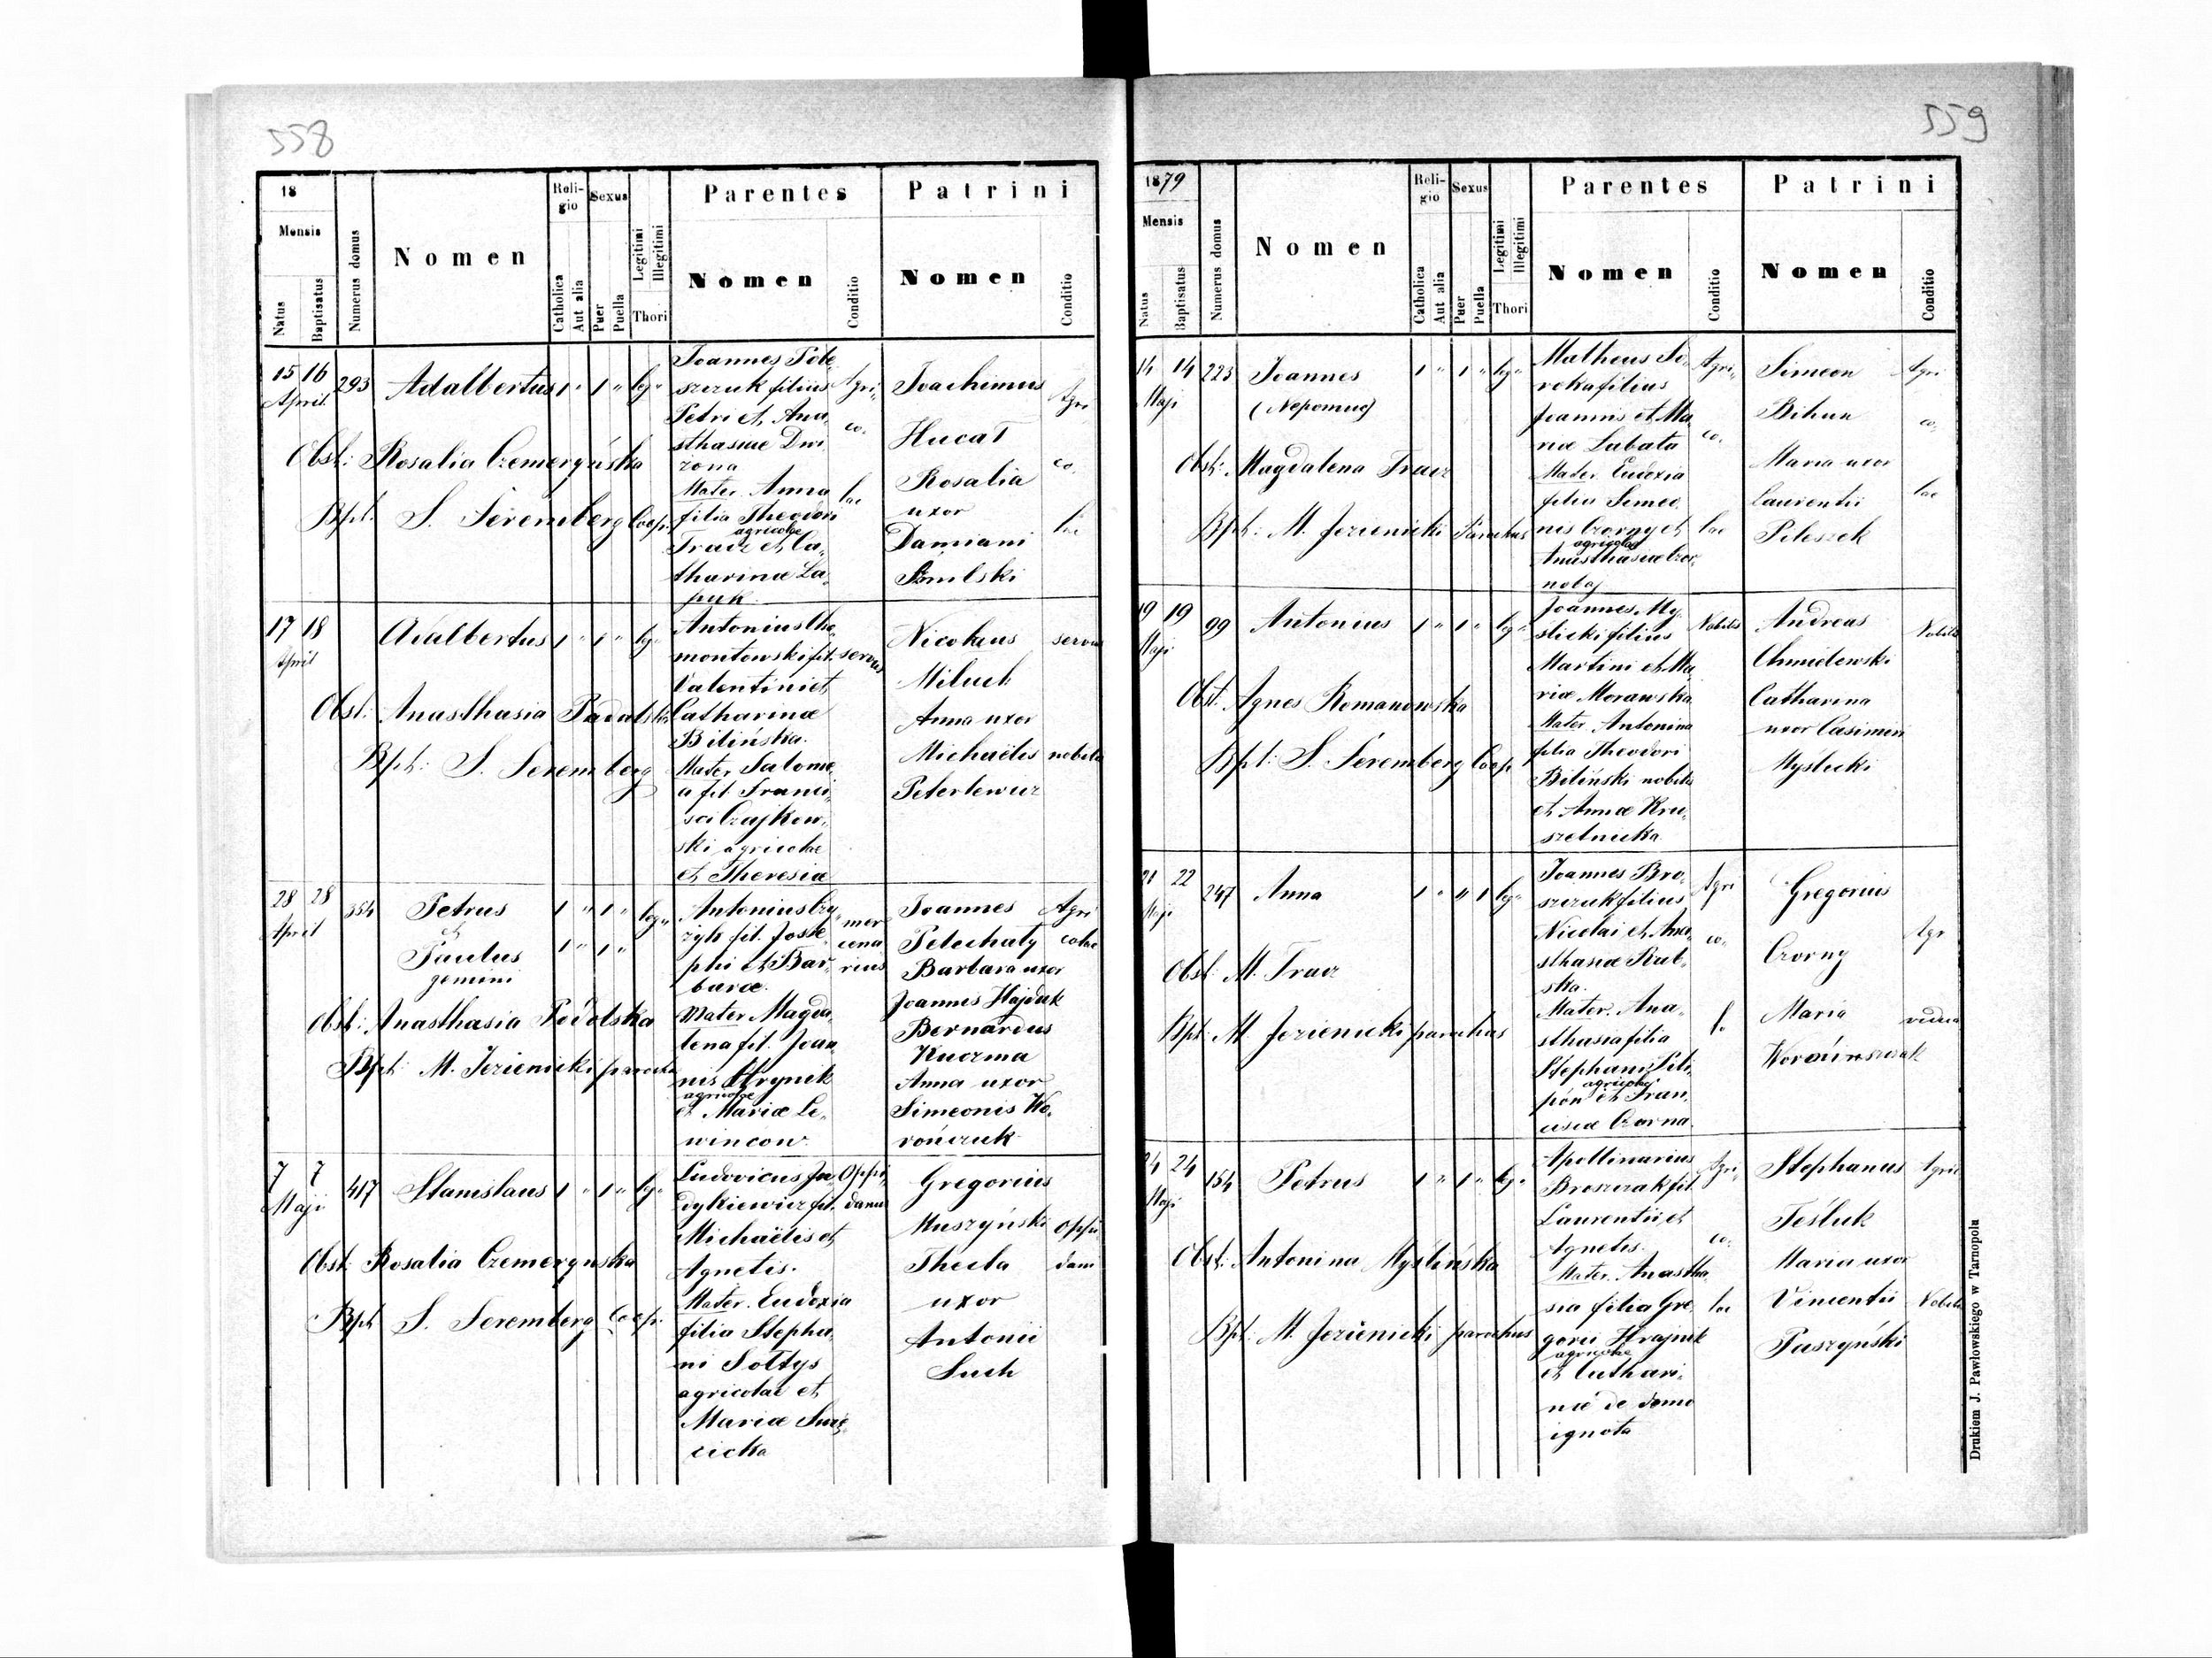 558
18
Mensis
Natus
Baptisatus
Numerus domus
Nomen
Reli-
gio
Catholica
Aut alia
Sexus
Puer
Puella
Legitimi
Illegitimi
Thori
Parentes
Nomen
Conditio
Patrini
Nomen
Conditio
15 16
April
293
Adalbertus
1 " 1 " leg"
Obst: Rosalia Czemeryńska
Bpt. S. Seremberg Coop.
Joannes
szczuk filius
Petri et Ana„
sthasiae Dwi„
zona
Mater. Anna
filia Theodori
agricolae
Tracz et Ca„
tharinae La„
puk.
Agri„
co„
lae
Joachimus
Hucał
Rosalia
uxor
Damiani
Smilski
Agri
co„
lae
17 18
April
Adalbertus
1 " 1 " leg"
Obst: Anasthasia Podolska
Bpt: S. Seremberg
Antonius Cho„
montowski fil.
Valentini et
Catharinae
Bilińska.
Mater Salome„
a fil. Franci„
sci Czajkow„
ski agricolae
et Theresiae
servus
Nicolaus
Anna uxor
Michaëlis
Peterlewicz
servus
nobilis
28 28
April
354
Petrus
et
Paulus
gemini
1 " 1 " leg"
1 " 1 "
Obst: Anasthasia Podolska
Bpt: M. Jezienicki parochus
Antonius
fil. Jose„
phi et Bar„
barae.
Mater Magda„
lena fil. Joan„
nis Hrynik
agricolae
et Mariae Le„
wincow
mer
cena
rius
Joannes
Pelechaty
Barbara uxor
Joannes Hajduk
Bernardus
Kuczma
Anna uxor
Simeonis Wo„
rończuk
Agri
colae
7 7
Maji
417
Stanislaus
1 " 1 " leg"
Obst: Rosalia Czemeryńska
Bpt S. Seremberg Coop.
Ludovicus Ja„
dykiewicz fil.
Michaëlis et
Agnetis.
Mater. Eudoxia
filia Stepha„
ni Sołtys
agricolae et
Mariae
cicka
Oppi„
danus
Gregorius
Muszyński
Thecla
uxor
Antonii
Such
Oppi
dani
559
1879
Mensis
Natus
Baptisatus
Numerus domus
Nomen
Reli-
gio
Catholica
Aut alia
Sexus
Puer
Puella
Legitimi
Illegitimi
Thori
Parentes
Nomen
Conditio
Patrini
Nomen
Conditio
14 14
Maji
223
Joannes
(Nepomuc)
1 " 1 " leg"
Obst: Magdalena Tracz
Bpt: M. Jezienicki Parochus
Matheus So„
roka filius
Joannis et Ma„
riae Labata
Mater. Eudoxia
filia Simeo„
nis Czorny et
agricolae
Anasthasiae Czor„
nota
Agri„
co„
lae
Simeon
Bihun
Maria uxor
Laurentii
Pileszek
Agri
co„
lae
19 19
Maji
99
Antonius
1 " 1 " leg"
Obst: Agnes Romanowska
Bpt: S. Seremberg Coop
Joannes My„
slicki filius
Martini et Ma„
riae Morawska
Mater Antonina
filia Theodori
Biliński nobilis
et Annae Kru„
szelnicka
Nobilis
Andreas
Chmielewski
Catharina
uxor Casimiri
Myślicki
Nobilis
21 22
Maji
247
Anna
1 " " 1 leg"
Obst: M. Tracz
Bpt: M. Jezienicki parochus
Joannes Bro„
szczuk filius
Nicolai et Ana„
sthasiae Rut„
ska.
Mater. Ana„
sthasia filia
Stephani Pili„
agricolae
pón et Fran„
cisca Czorna.
Agri
co„
l.
Gregorius
Czorny
Maria
Agr
vidua
24 24
Maji
154
Petrus
1 " 1 " leg"
Obst: Antonina Myślińska
Bpt: M. Jezienicki parochus
Apollinarius
Broszczak fil.
Laurentii et
Agnetis.
Mater. Anastha„
sia filia Gre„
gorii Hrajnik
agricolae
et Cathari„
nae de domo
ignota
Agri„
co„
lae
Stephanus
Teśluk
Maria uxor
Vincentii
Paszyński
Agric
Nobilis
Drukiem J. Pawłowskiego w Tarnopolu